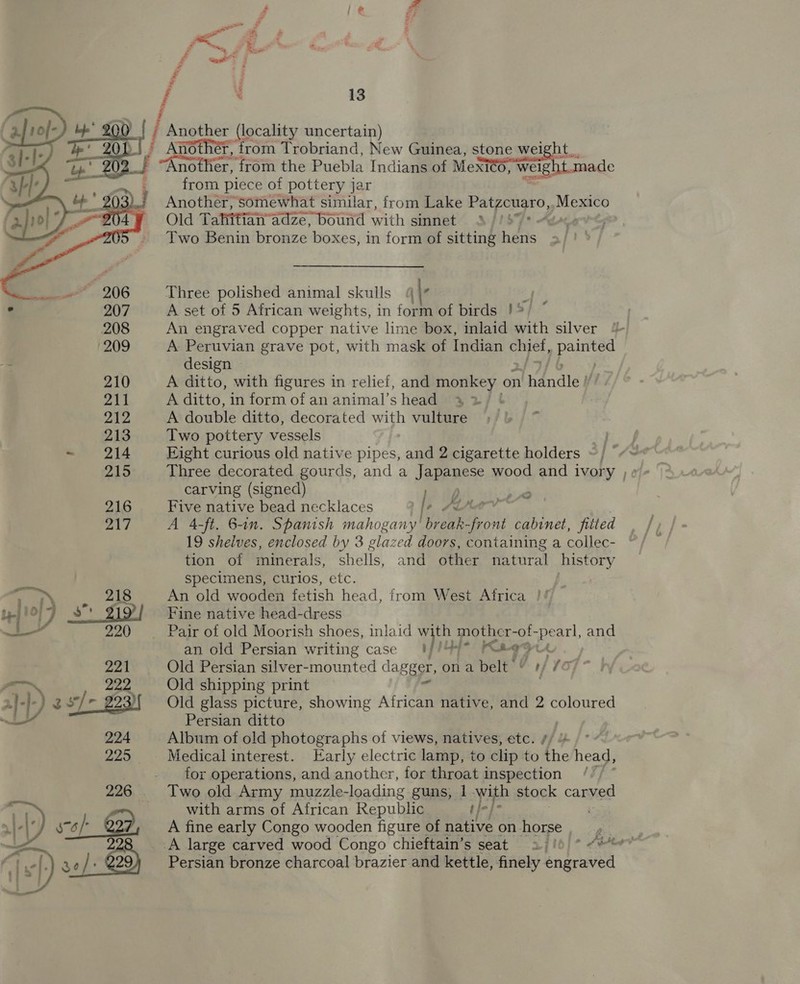 13
200 Another (locality uncertain)
201 Another, from Trobriand, New Guinea, stone weight
202 Another, from the Puebla Indians of Mexico, weight made
from piece of pottery jar
203 Another, somewhat similar, from Lake Patzcuaro, Mexico
204 Old Tahitian adze, bound with sinnet
205 Two Benin bronze boxes, in form of sitting hens
206 Three polished animal skulls
207 A set of 5 African weights, in form of birds
208 An engraved copper native lime box, inlaid with silver
209 A Peruvian grave pot, with mask of Indian chief, painted
design
210 A ditto, with figures in relief, and monkey on handle
211 A ditto, in form of an animal's head
212 A double ditto, decorated with vulture
213 Two pottery vessels
214 Eight curious old native pipes, and 2 cigarette holders
215 Three decorated gourds, and a Japanese wood and ivory
carving (signed)
216 Five native bead necklaces
217 A 4-ft. 6-in. Spanish mahogany break-front cabinet, fitted
19 shelves, enclosed by 3 glazed doors, containing a collec-
tion of minerals, shells, and other natural history
specimens, curios, etc.
218 An old wooden fetish head, from West Africa
219 Fine native head-dress
220 Pair of old Moorish shoes, inlaid with mother-of-pearl, and
an old Persian writing case
221 Old Persian silver-mounted dagger, on a belt
222 Old shipping print
223 Old glass picture, showing African native, and 2 coloured
Persian ditto
224 Album of old photographs of views, natives, etc.
225 Medical interest. Early electric lamp, to clip to the head,
for operations, and another, for throat inspection
226 Two old Army muzzle-loading guns, 1 with stock carved
with arms of African Republic
227 A fine early Congo wooden figure of native on horse
228 A large carved wood Congo chieftain's seat
229 Persian bronze charcoal brazier and kettle, finely engraved